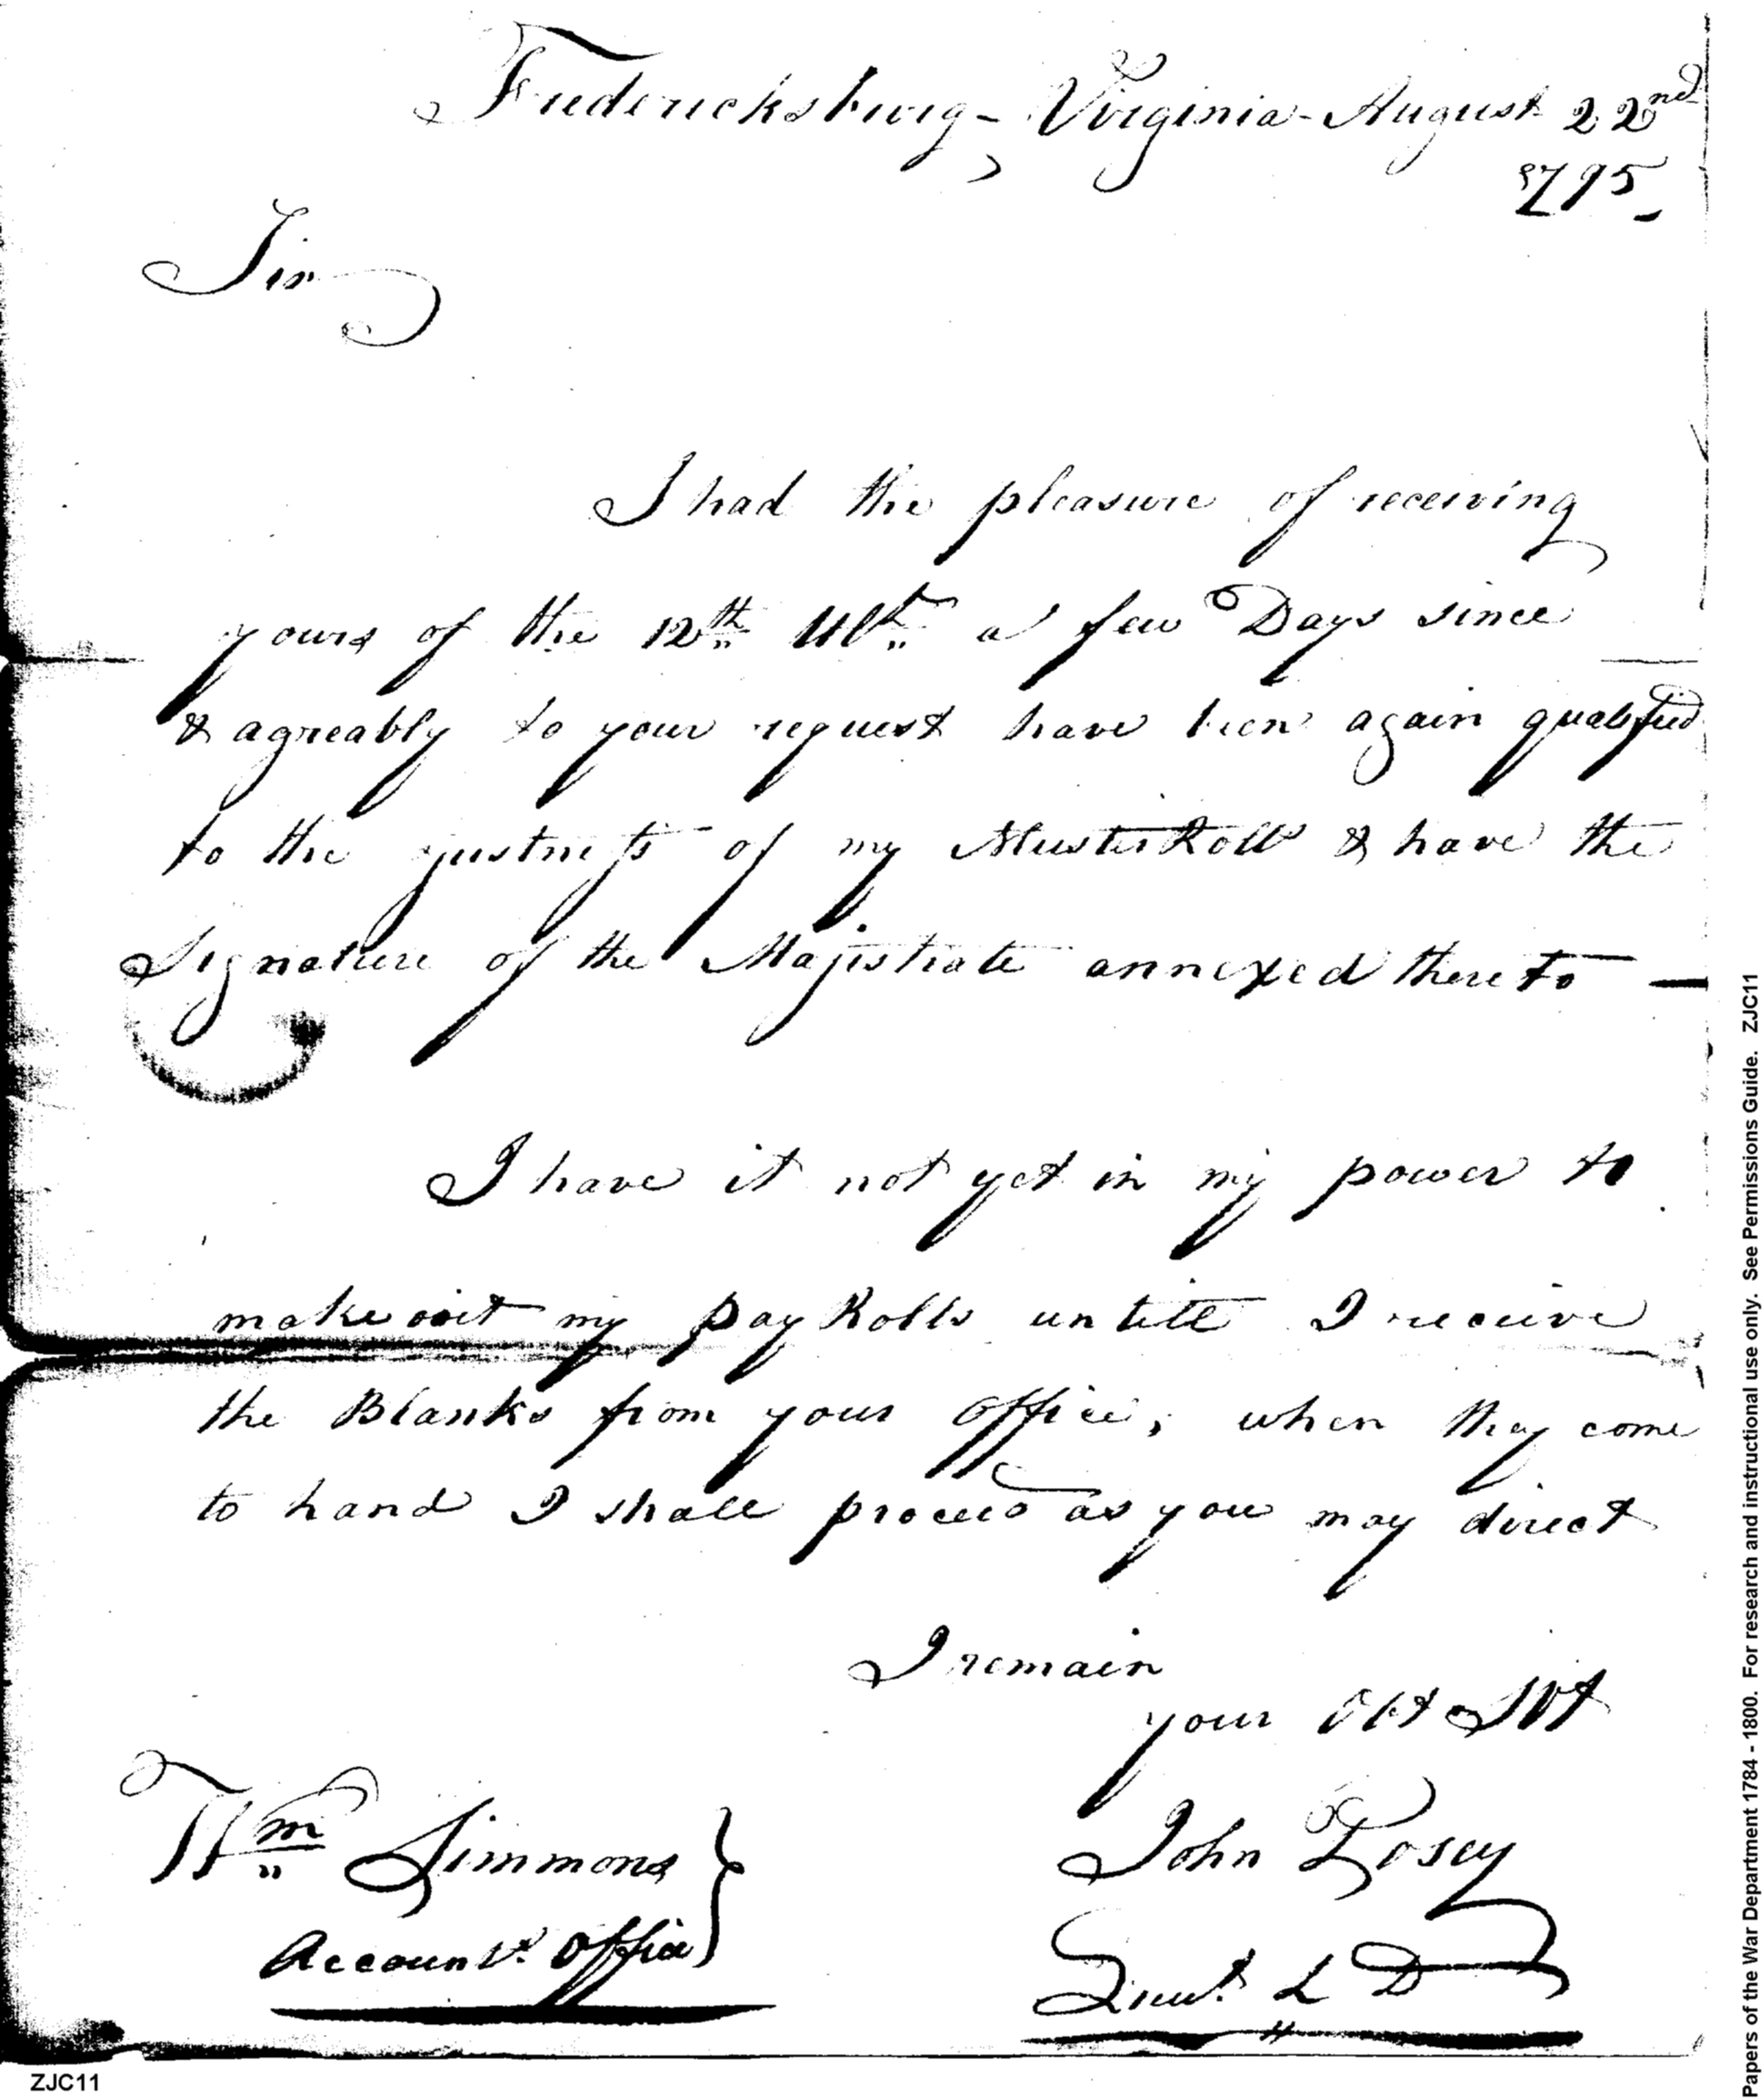 Fredericksburg - Virginia - August 22nd
1795
Sir
I had the pleasure of receiving
yours of the 12th Ult. a few Days since
& agreably to your request have been again qualified
to the justness of my Muster Roll & have the
Signature of the Majistrate annexed thereto —
I have it not yet in my power to
make out my pay Rolls untill I receive
the Blanks from your office, when they come
to hand I shall proceed as you may direct
I remain
your Obt Svt
Wm Simmons
Accountt. Office
John Posey
Lieut. L D
ZJC11
Papers of the War Department 1784 - 1800. For research and instructional use only. See Permissions Guide. ZJC11